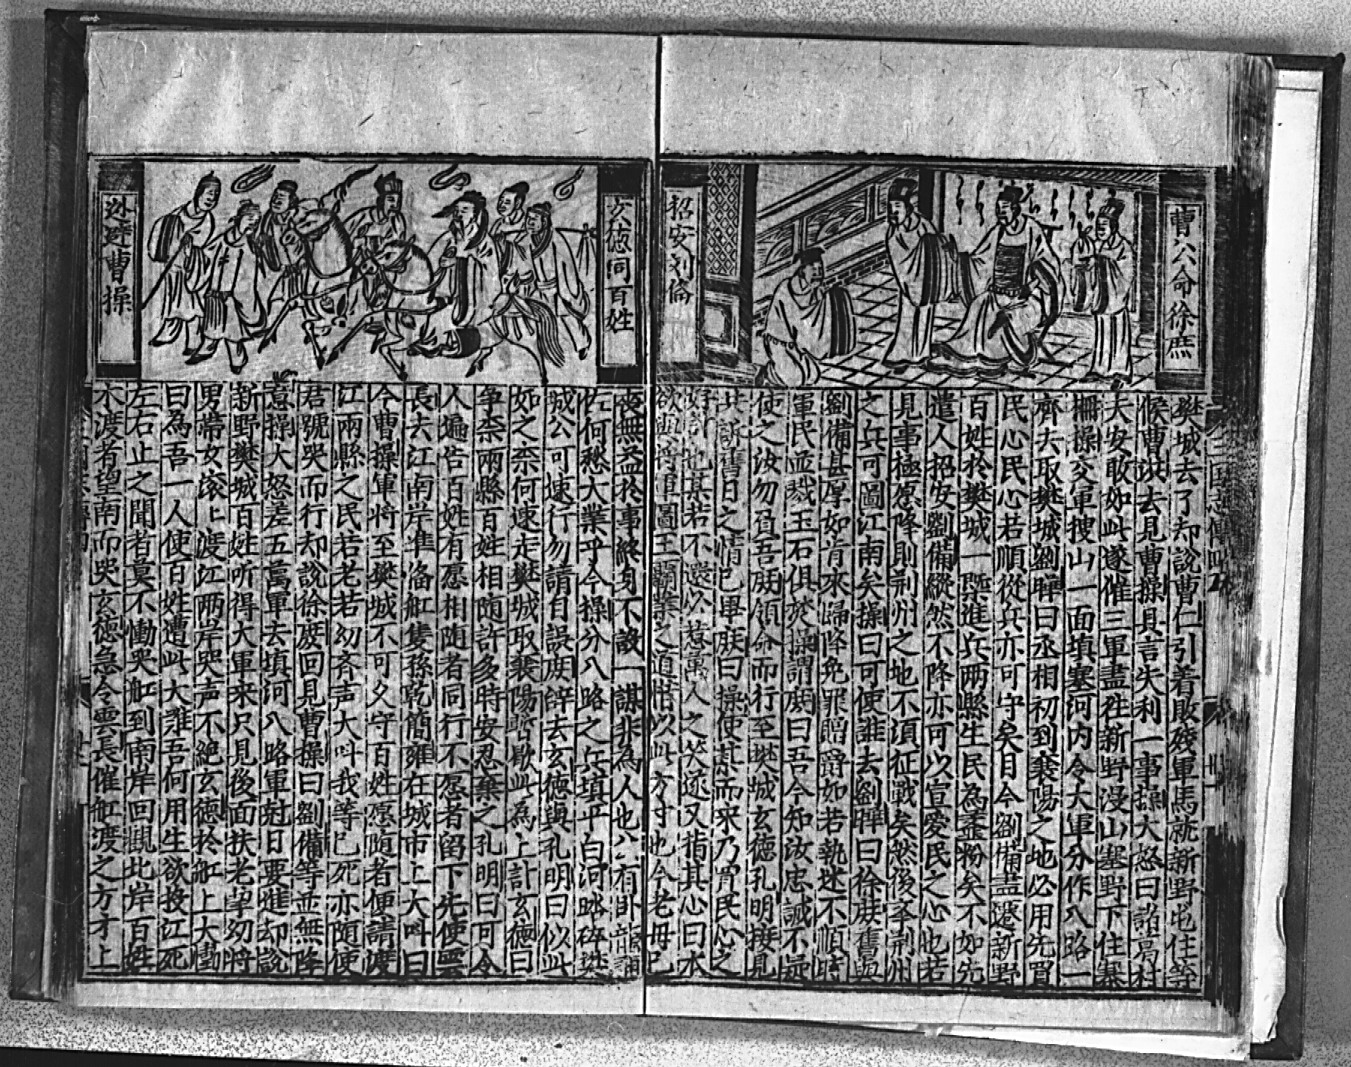 曹公命徐庶
招安刘俻
樊城去了却說曹仁引着敗殘軍馬就新野屯住等
候曹洪去見曹操具言失利一事操大怒曰諸葛村
夫安敢如此遂催三軍盡往新野漫山塞野下住寨
柵操交軍搜山一面填塞河内令大軍分作八路一
齊去取樊城劉曄曰丞相初到襄陽之地必用先買
民心民心若順從兵亦可守矣目今劉備盡遷新野
百姓於樊城一槩進兵两縣生民為虀粉矣不如先
遣人招安劉備縱然不降亦可以宣愛民之心也若
見事極愿降則荆州之地不須征戰矣然後孝荆州
之兵可圖江南矣操曰可使誰去劉曄曰徐庶舊與
劉備甚厚如肯來歸降免罪贈爵如若執迷不順時
軍民並戮玉石俱焚操謂庶曰吾今知汝忠誠不疑
使之汝勿負吾庶領命而行至樊城玄德孔明接見
共訴舊日之情已畢庶曰操使某而來乃買民心之
也某若不還必惹萬人之笑遂又指其心曰本
欲與將軍圖王霸業之道惜以此方寸也今老母已
玄德同百姓
迯避曹操
喪無益於事終身不設一謀非為人也公有卧龍誦
佐何愁大業乎今操分八路之兵填平白河踏碎樊
城公可速行勿請自誤庶辞去玄德與孔明曰似此
如之柰何速走樊城取襄陽暫歇此為上計玄德曰
争柰兩縣百姓相随許多時安忍棄之孔明曰可令
人遍告百姓有愿相随者同行不愿者留下先使雲
長去江南岸准俻舡隻孫乾簡雍在城市上大叫曰
今曹操軍將至樊城不可久守百姓愿随者便請渡
江兩縣之民若老若幼斉声大叫我等已死亦随使
君號哭而行却說徐庶回見曹操曰劉備等並無降
意操大怒差五萬軍去填河八路軍尅日要進却說
新野樊城百姓听得大軍來只見後面扶老挈幼將
男帶女滚上渡江两岸哭声不絶玄德於舡上大慟
曰為吾一人使百姓遭此大難吾何用生欲投江死
左右止之聞者莫不慟哭舡到南岸回觀北岸百姓
不渡者望南而哭玄德急令雲長催舡渡之方才上